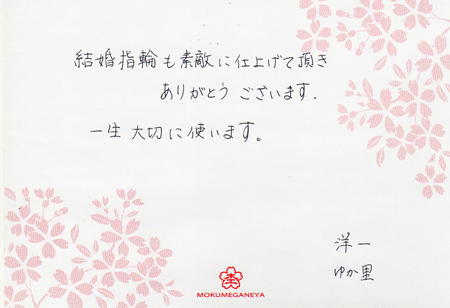 結婚指輪も素敵に仕上げて頂き
ありがとうございます.
一生大切に使います。
洋一
ゆか里
MOKUMEGANEYA